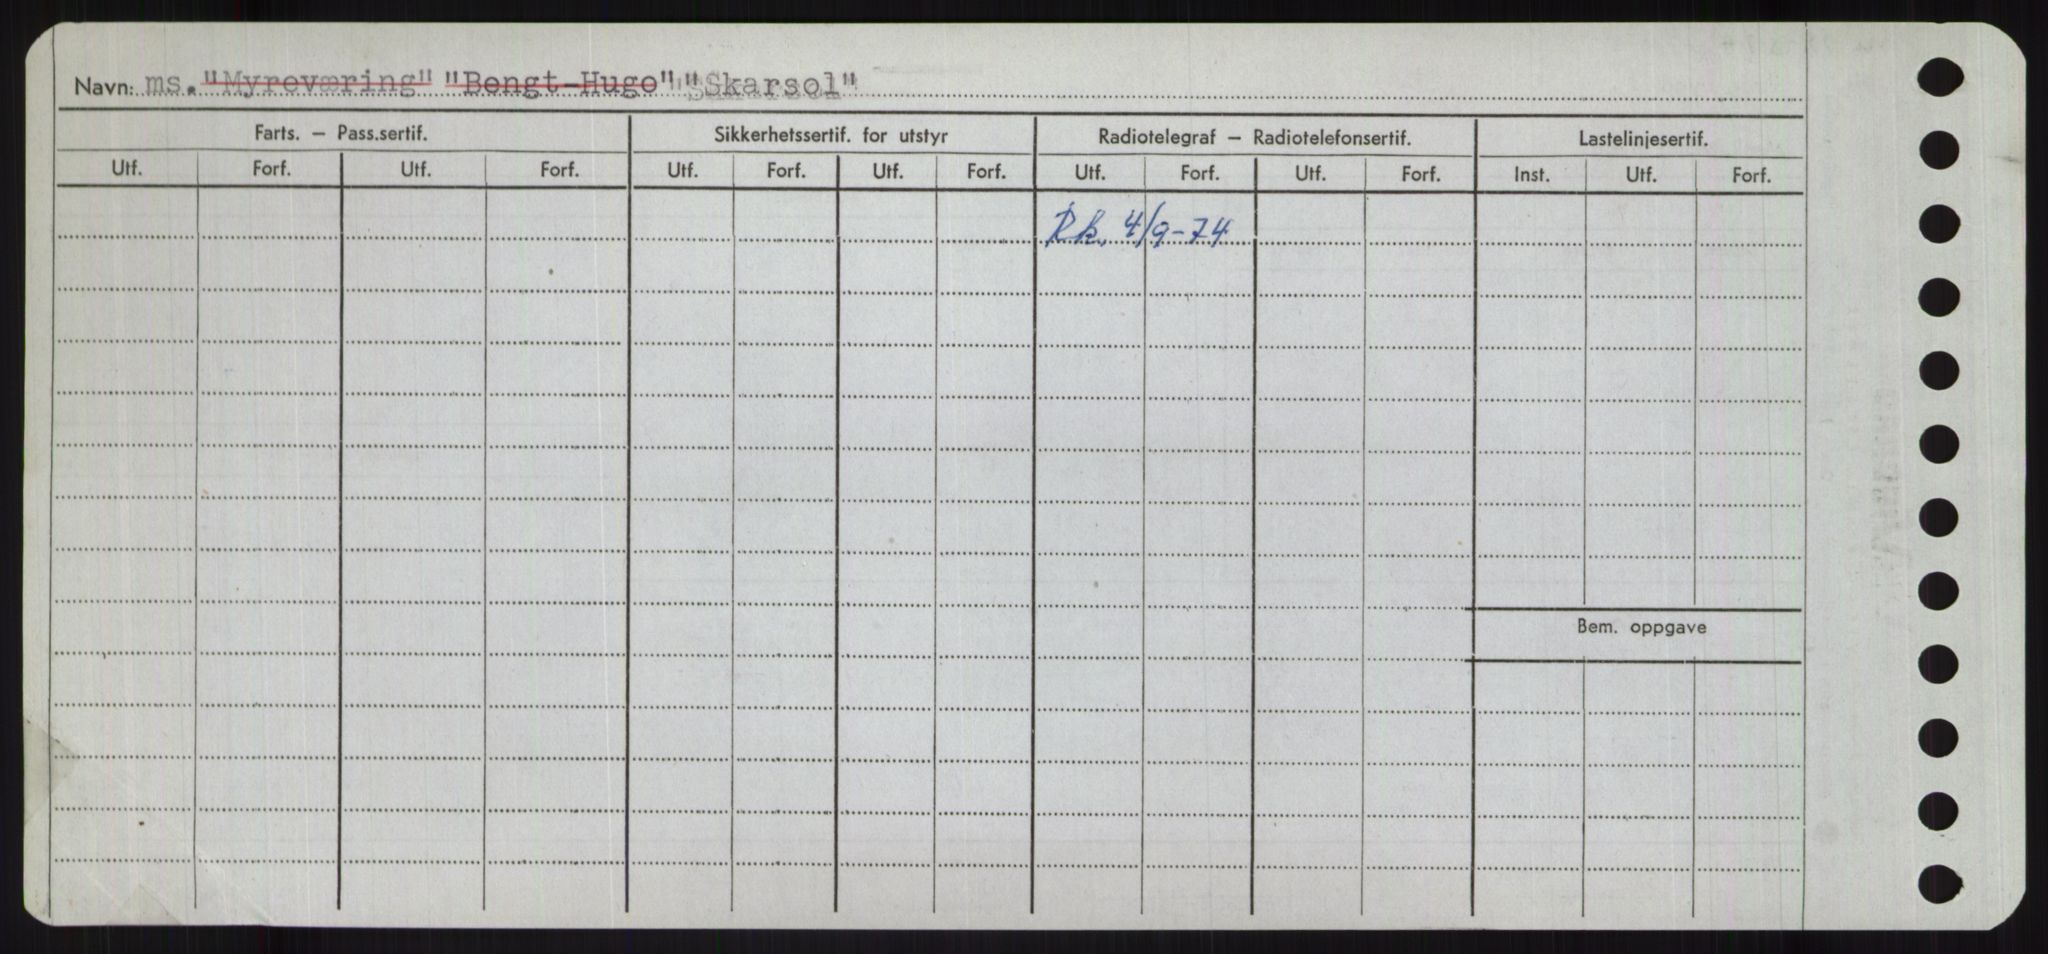 Navn: ms. "Myreværing" "Bengt-Hugo" "Skarsol"
Farts. – Pass.sertif. Sikkerhetssertif. for utstyr Radiotelegraf – Radiotelefonsertif. Lastelinjesertif.
Utf. Forf. Utf. Forf. Utf. Forf. Utf. Forf. Utf. Forf. Utf. Forf. Inst. Utf. Forf.
Rk. 4/9-74
Bem. oppgave